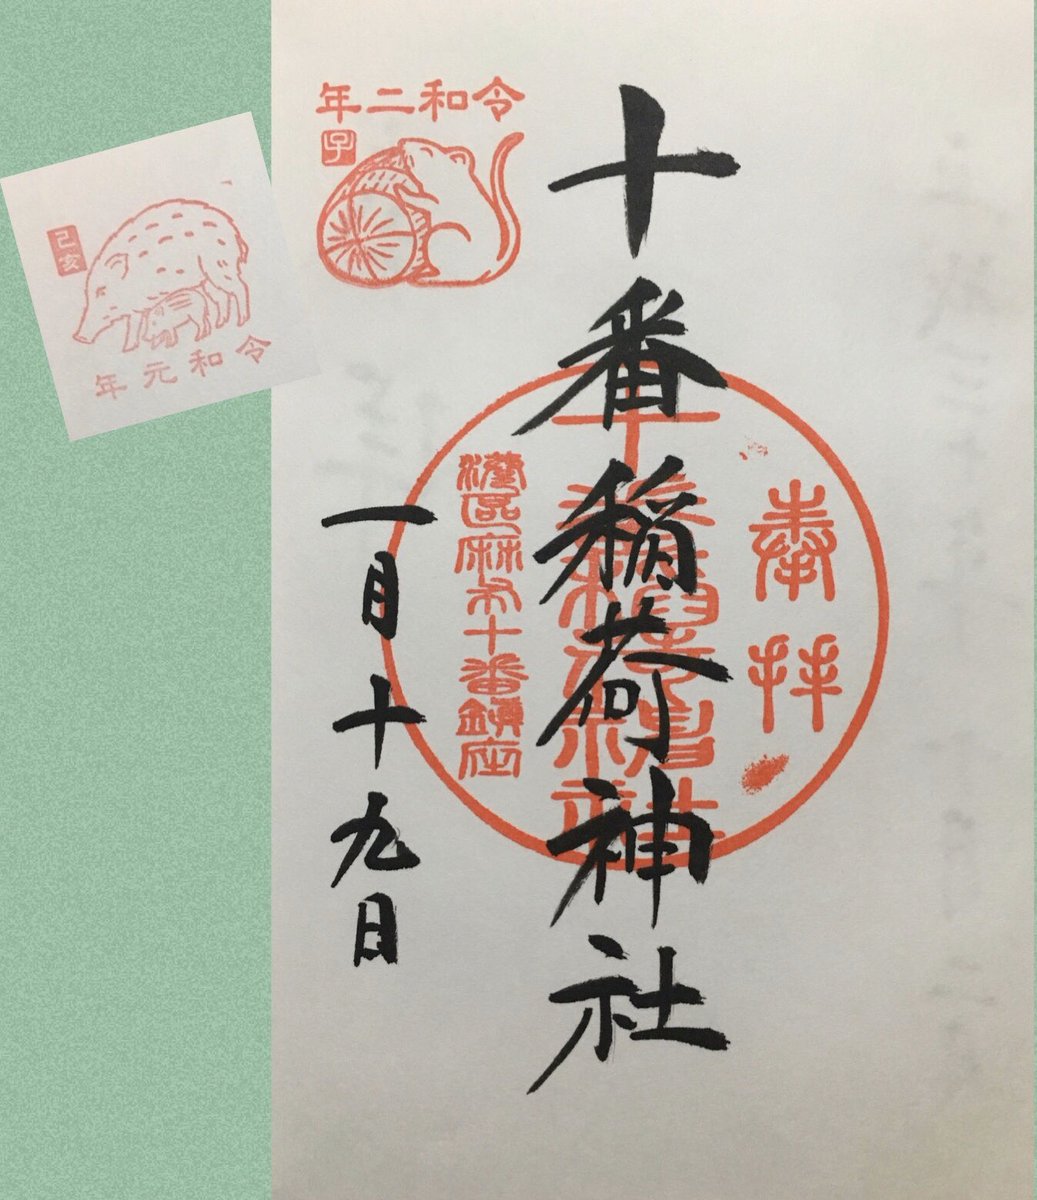 令和二年
子
十番稲荷神社
奉拝
港區麻布十番鎮座
一月十九日
己亥
令和元年